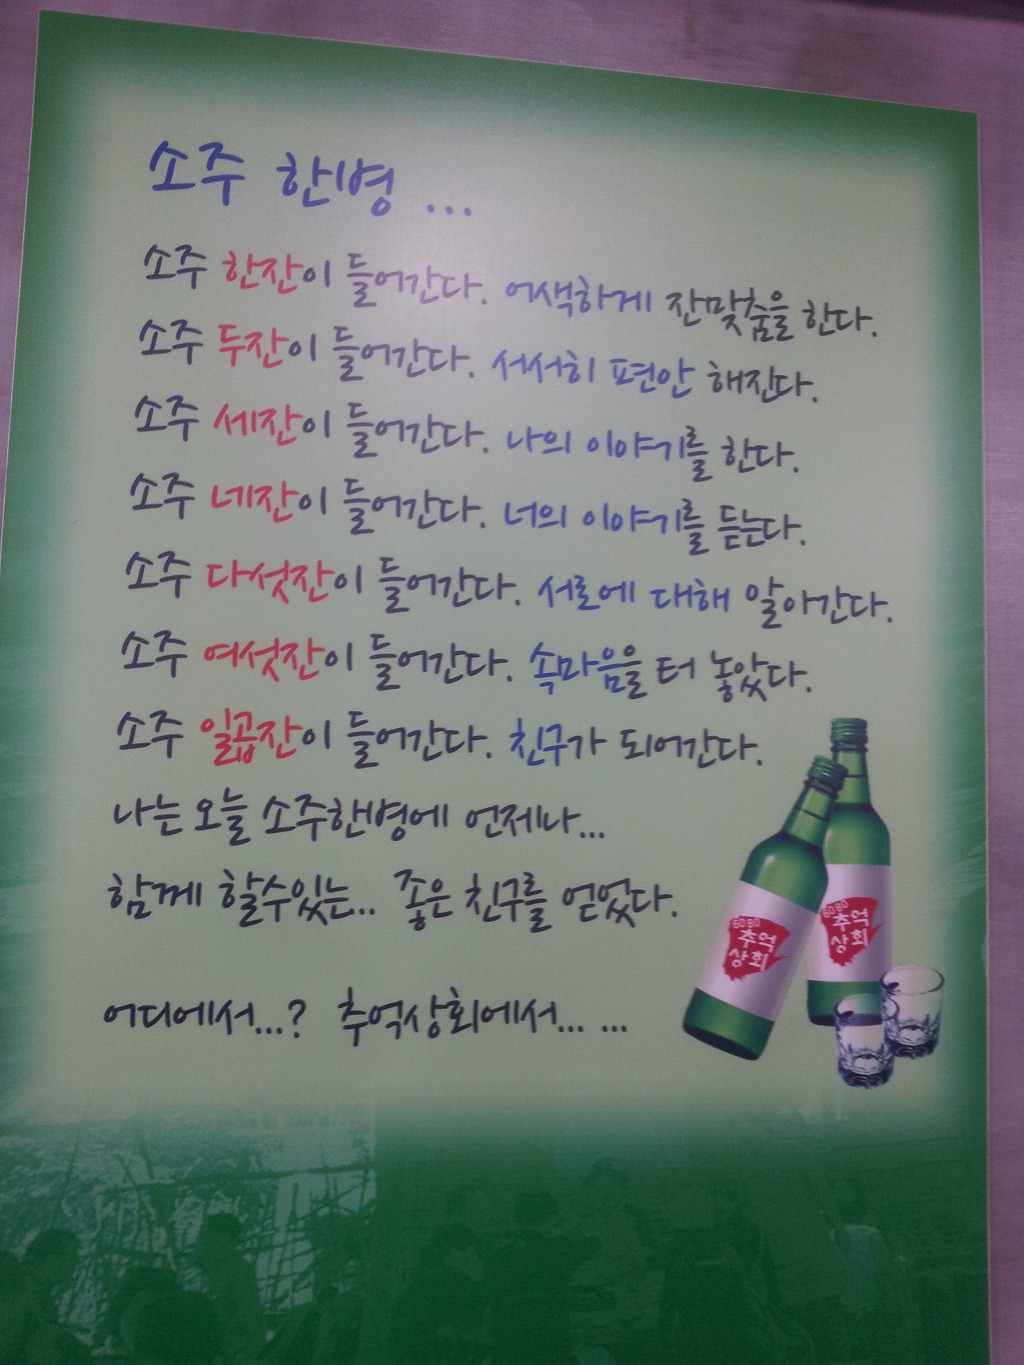 소주 한병 ...
소주 한잔이 들어간다. 어색하게 잔맞춤을 한다.
소주 두잔이 들어간다. 서서히 편안 해진다.
소주 세잔이 들어간다. 나의 이야기를 한다.
소주 네잔이 들어간다. 너의 이야기를 듣는다.
소주 다섯잔이 들어간다. 서로에 대해 알아간다.
소주 여섯잔이 들어간다. 속마음을 터 놓았다.
소주 일곱잔이 들어간다. 친구가 되어간다.
나는 오늘 소주한병에 언제나...
함께 할수있는.. 좋은 친구를 얻었다.
어디에서...? 추억상회에서... ...
6080
추억
상회
6080
추억
상회